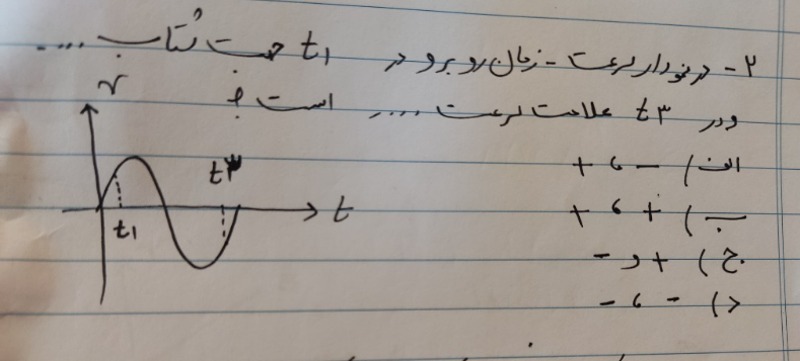 ۲- در نمودار سرعت - زمان روبرو در t₁ جهت شتاب ....
و در t۳ علامت سرعت .... است؟
الف) - ، +
ب) + ، +
ج) + و -
د) - ، -
v
t۳
t
t₁